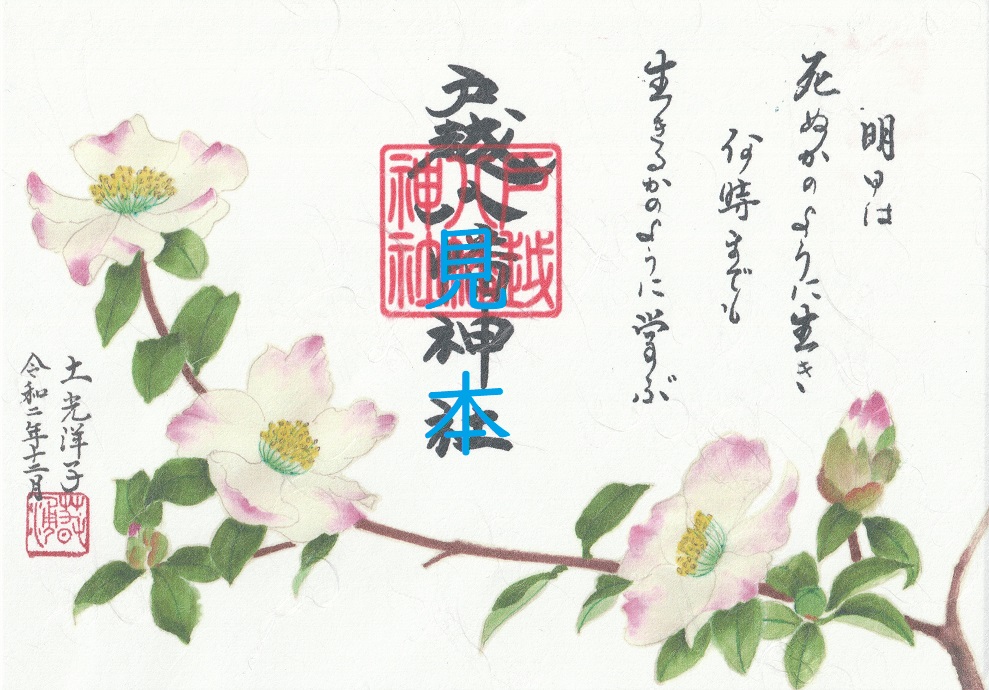 明日は
死ぬかのように生き
何時までも
生きるかのように学ぶ
戸越八幡神社
戸越
八幡
神社
見本
土光洋子
令和二年十二月